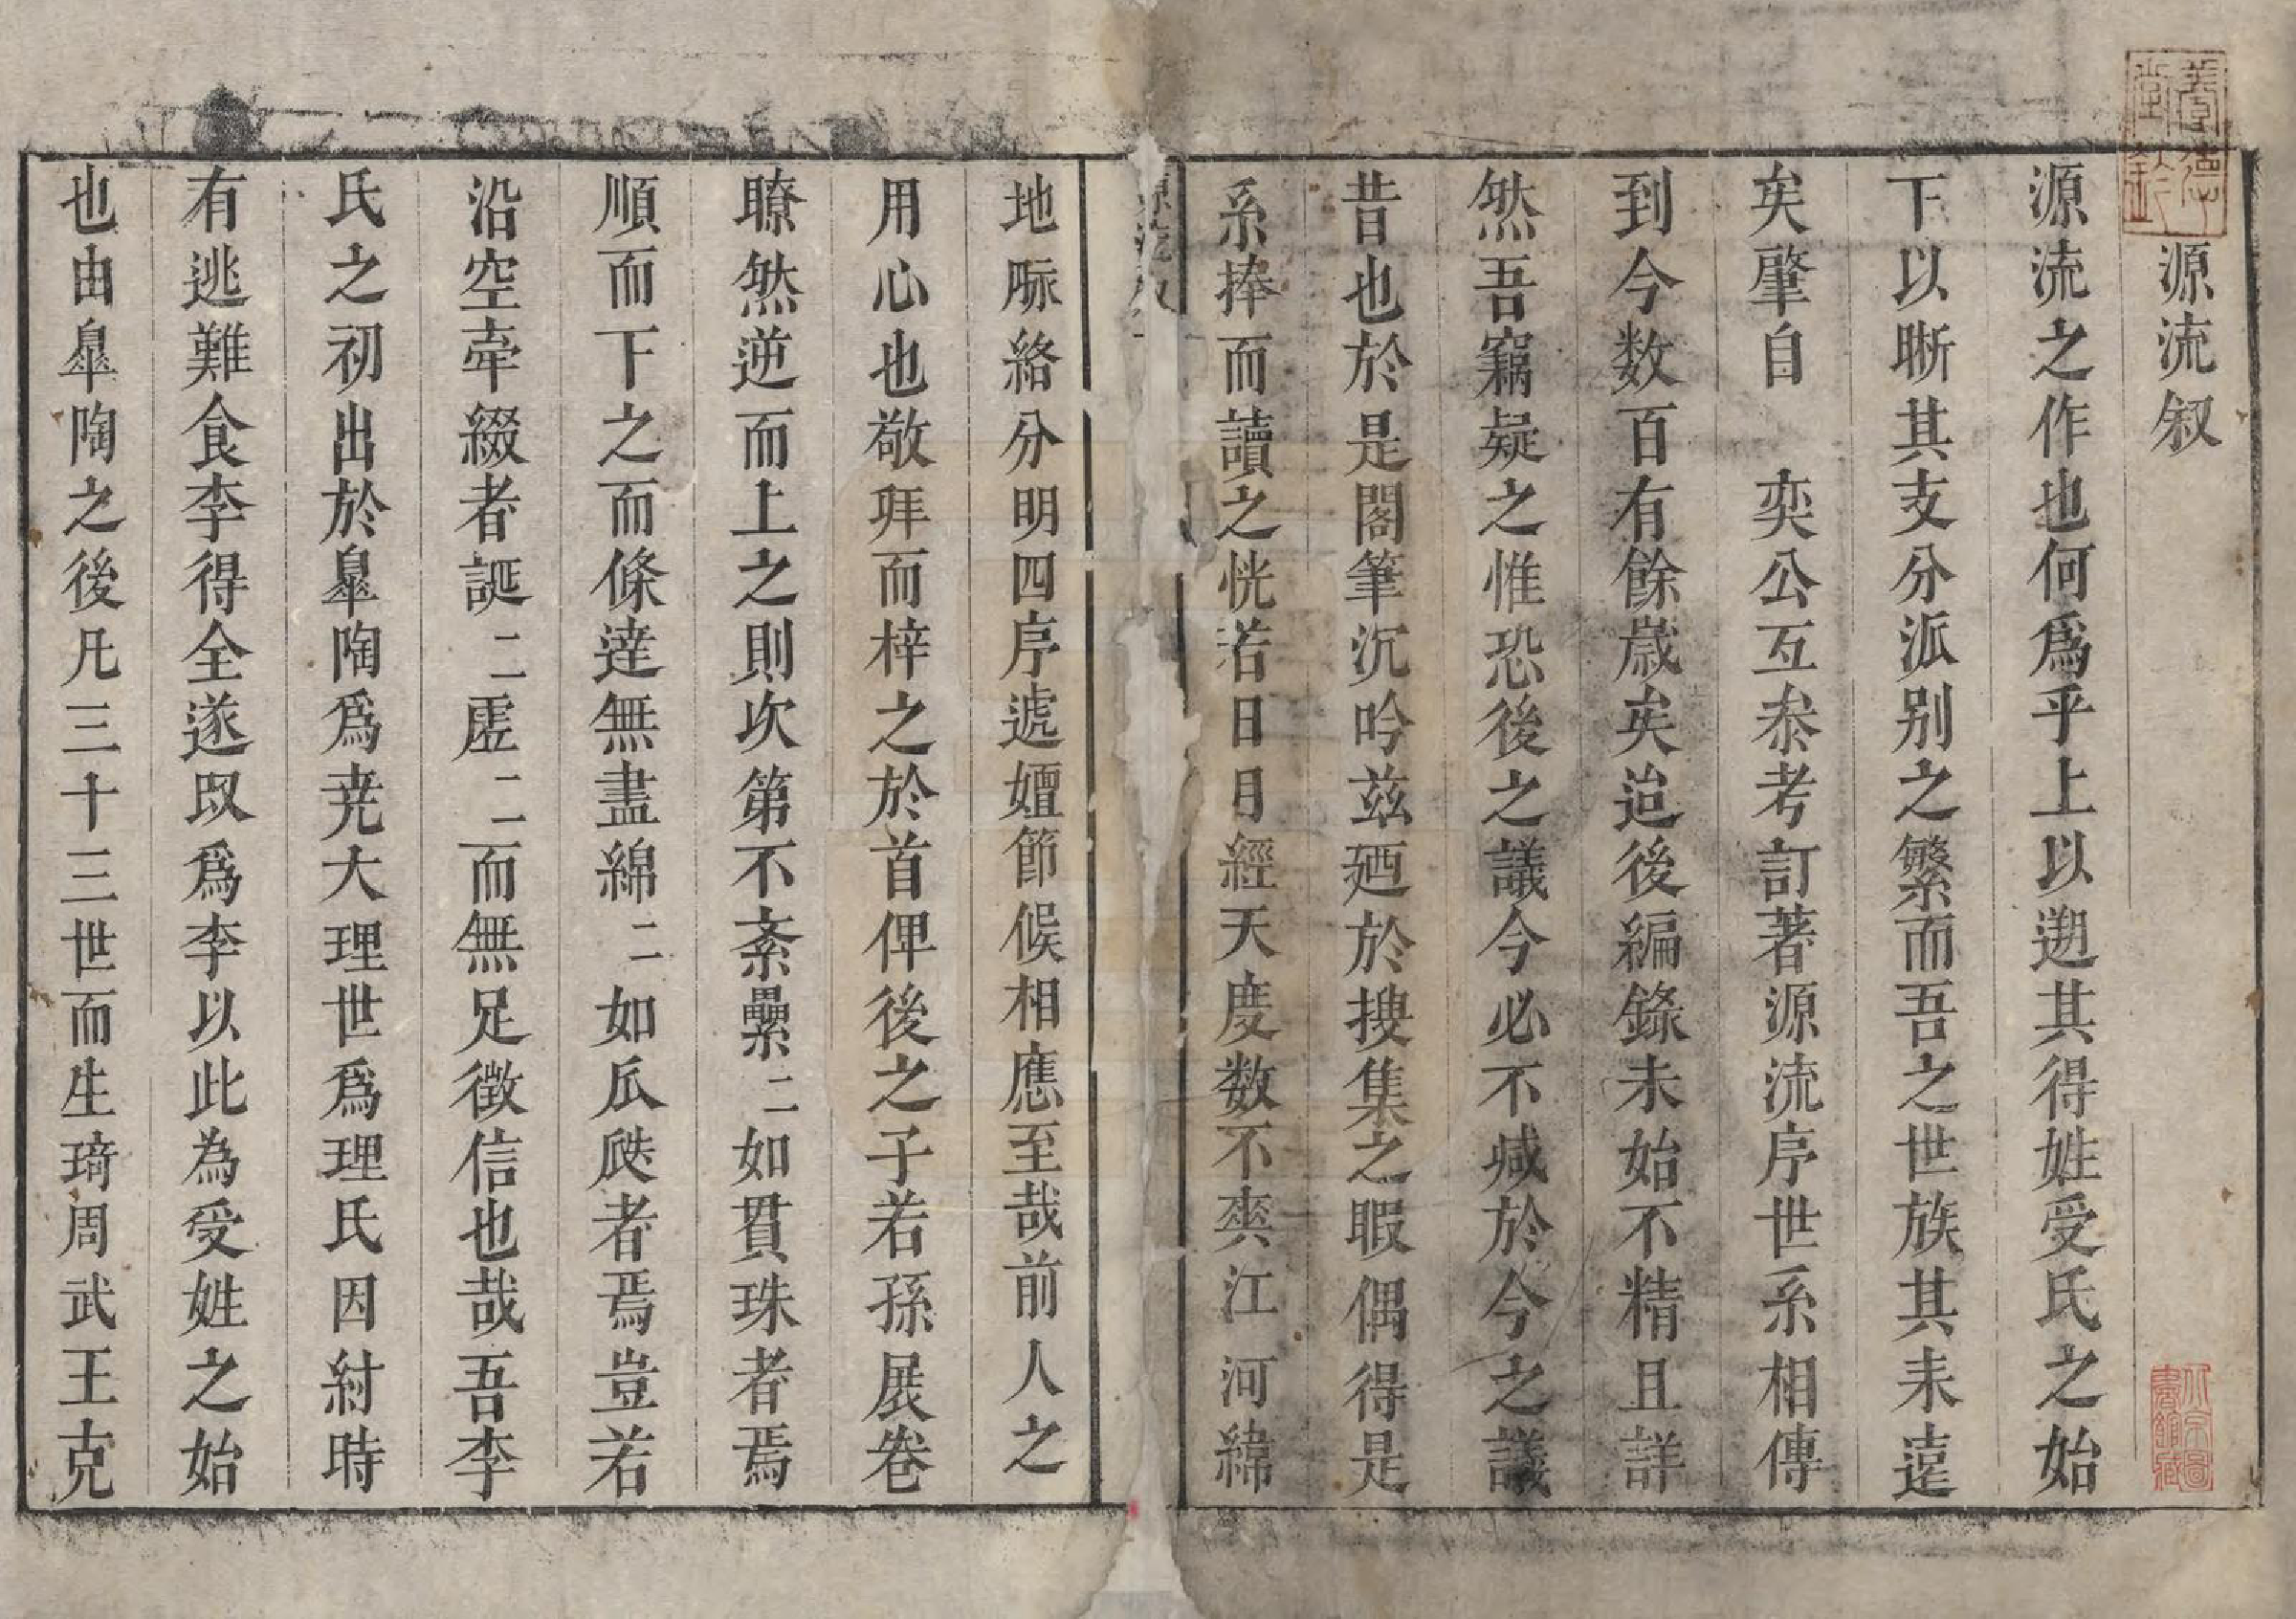 源流叙
源流之作也何爲乎上以遡其得姓受氏之始
下以晣其支分派别之繁而吾之世族其来遠
矣肈自　奕公互叅考訂著源流序世系相傳
到今数百有餘歳矣迨後編錄未始不精且詳
然吾竊疑之惟恐後之議今必不减於今之議
昔也於是閣筆沉吟兹廼於搜集之暇偶得是
系捧而讀之恍若日月經天度数不爽江河緯
地脈絡分明四序遞嬗節候相應至哉前人之
用心也敬拜而梓之於首俾後之子若孫展卷
瞭然逆而上之則次第不紊纍二如貫珠者焉
順而下之而條達無盡綿二如瓜瓞者焉豈若
沿空牽綴者誕二虛二而無足徵信也哉吾李
氏之初出於臯陶爲尭大理世爲理氏因紂時
有逃難食李得全遂改爲李以此為受姓之始
也由臯陶之後凡三十三世而生琦周武王克